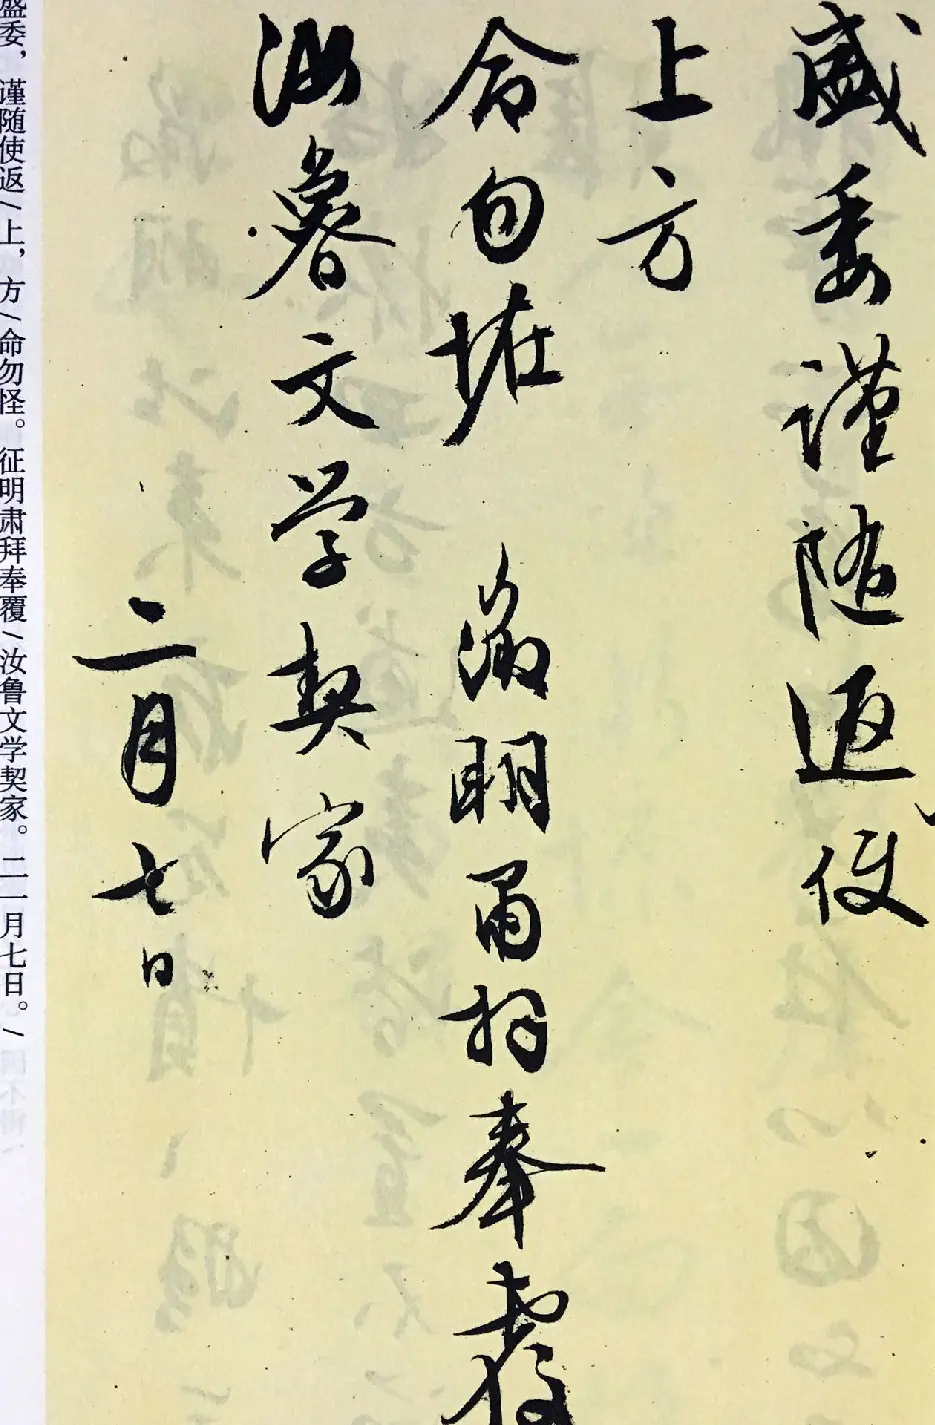 盛委謹随返使
上方
命勿怪 徵明肅拜奉覆
汝魯文学契家
二月七日
盛委，谨随使返/上，方/命勿怪。征明肃拜奉覆/汝鲁文学契家。二一月七日。/